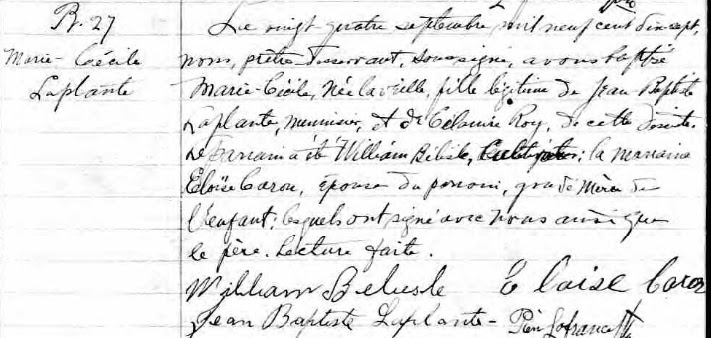 B. 27
Marie-Cécile
Laplante
Le vingt quatre septembre mil neuf cent dix-sept,
nous, prêtre desservant, soussigné, avons baptisé
Marie-Cécile, née la veille, fille légitime de Jean Baptiste
Laplante, menuisier, et de Célanire Roy, de cette desserte.
Le parrain a été William Bélisle, la marraine
Eloïse Caron, épouse du parrain, grand'mère de
l'enfant; lesquels ont signé avec nous ainsi que
le père. Lecture faite.
William Belisle Eloise Caron
Jean Baptiste Laplante -